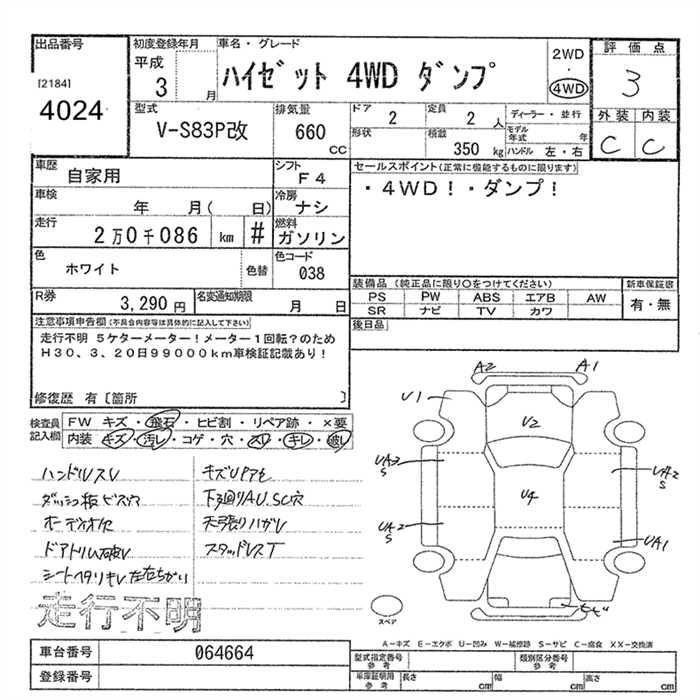 出品番号
[2184]
4024
初度登録年月
平成
3 月
車名・グレード
ハイゼット 4WD ダンプ
2WD
・
4WD
評価点
3
外装 内装
C C
型式
V-S83P改
排気量
660
CC
ドア
2
定員
2 人
ディーラー・並行
形状
積載
350 kg
モデル年式 年
ハンドル 左・右
車歴
自家用
シフト
F4
セールスポイント(正常に機能するものに限ります)
・4WD!・ダンプ!
車検
年 月( 日)
冷房
ナシ
走行
2万0千086 km #
燃料
ガソリン
色
ホワイト
色替
色コード
038
装備品 (純正品に限り○をつけてください)
新車保証書
PS PW ABS エアB AW
有・無
SR ナビ TV カワ
R券
3,290 円
名変通知期限
月 日
後日品
注意事項申告欄(不具合内容等は具体的に記入して下さい)
走行不明 5ケターメーター!メーター1回転?のため
H30、3、20日99000km車検証記載あり!
修復歴 有〔箇所 〕
検査員記入欄
FW キズ・飛石・ヒビ割・リペア跡・×要
内装 キズ・汚レ・コゲ・穴・スレ・キレ・破レ
ハンドルスレ
ダッシュ板ビス穴
オーディオ欠
ドアトリム破レ
シートヘタリキレ左右ちがい
キズUアセ
下廻りAU.SC穴
天張りハガレ
スタッドレスT
A2 A1
U1
U2
UA3
S
UA2
S
U4
UA2
S
UA1
スペア
走行不明
A-キズ E-エクボ U-凹み W-補修跡 S-サビ C-腐食 XX-交換済
車台番号
064664
登録番号
型式指定番号
参考
類別区分番号
参考
車庫証明用
参考
長さ cm
幅 cm
高さ cm